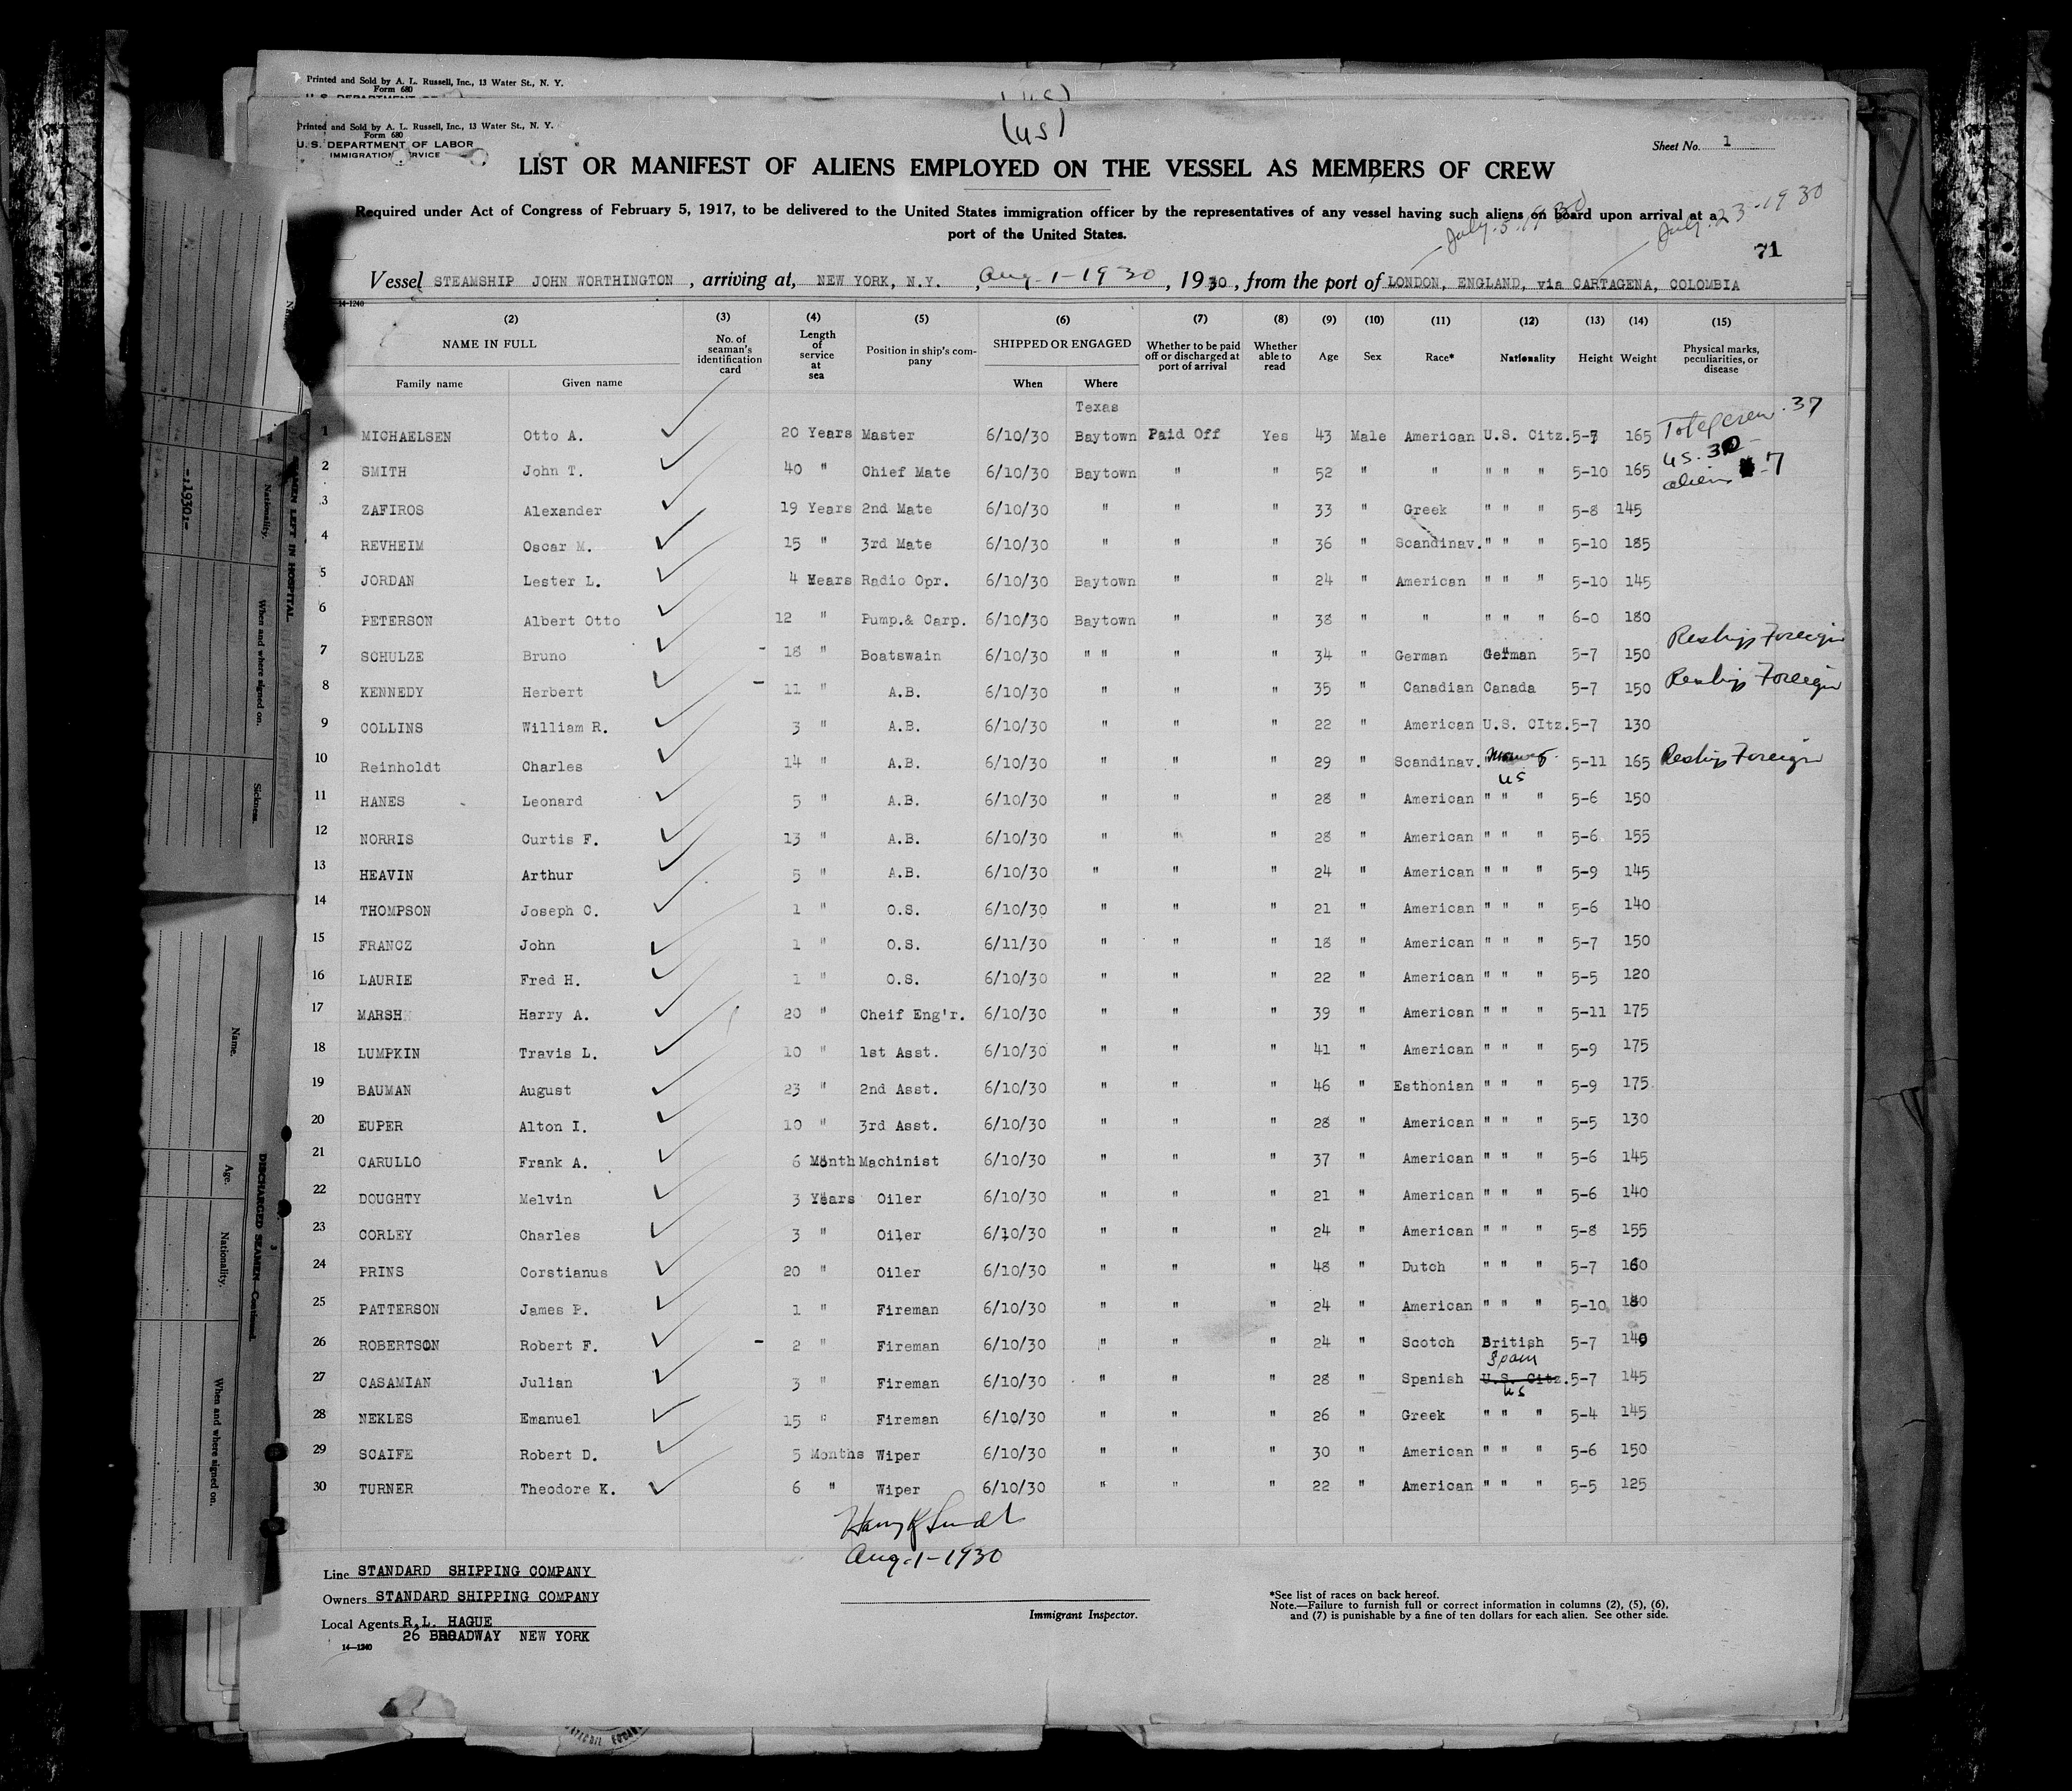 Printed and Sold by A. L. Russell, Inc., 13 Water St., N. Y.
Form 680
(US)
Printed and Sold by A. L. Russell, Inc., 13 Water St., N. Y.
Form 680
U. S. DEPARTMENT OF LABOR
IMMIGRATION SERVICE
Sheet No. 1
LIST OR MANIFEST OF ALIENS EMPLOYED ON THE VESSEL AS MEMBERS OF CREW
Required under Act of Congress of February 5, 1917, to be delivered to the United States immigration officer by the representatives of any vessel having such aliens on board upon arrival at a
port of the United States.
July 5, 1930 July 23-1930
71
Vessel STEAMSHIP JOHN WORTHINGTON, arriving at, NEW YORK, N.Y., Aug-1-1930, 1930, from the port of LONDON, ENGLAND, via CARTAGENA, COLOMBIA
14-1240
(2) (3) (4) (5) (6) (7) (8) (9) (10) (11) (12) (13) (14) (15)
NAME IN FULL No. of seaman's identification card Length of service at sea Position in ship's company SHIPPED OR ENGAGED Whether to be paid off or discharged at port of arrival Whether able to read Age Sex Race* Nationality Height Weight Physical marks, peculiarities, or disease
Family name Given name When Where
Texas
1 MICHAELSEN Otto A. 20 Years Master 6/10/30 Baytown Paid Off Yes 43 Male American U.S. Citz. 5-7 165 Total crew. 37
2 SMITH John T. 40 " Chief Mate 6/10/30 Baytown " " 52 " " " " " 5-10 165 US. 30 aliens 7
3 ZAFIROS Alexander 19 Years 2nd Mate 6/10/30 " " " 33 " Greek " " " 5-8 145
4 REVHEIM Oscar M. 15 " 3rd Mate 6/10/30 " " " 36 " Scandinav. " " " 5-10 185
5 JORDAN Lester L. 4 Years Radio Opr. 6/10/30 Baytown " " 24 " American " " " 5-10 145
6 PETERSON Albert Otto 12 " Pump.& Carp. 6/10/30 Baytown " " 38 " " " " " 6-0 180
7 SCHULZE Bruno - 18 " Boatswain 6/10/30 " " " " 34 " German German 5-7 150 Reship Foreign
8 KENNEDY Herbert - 11 " A.B. 6/10/30 " " " 35 " Canadian Canada 5-7 150 Reship Foreign
9 COLLINS William R. 3 " A.B. 6/10/30 " " " 22 " American U.S. CItz. 5-7 130
10 Reinholdt Charles 14 " A.B. 6/10/30 " " " 29 " Scandinav. 5-11 165 Reship Foreign
US
11 HANES Leonard 5 " A.B. 6/10/30 " " " 28 " American " " " 5-6 150
12 NORRIS Curtis F. 13 " A.B. 6/10/30 " " " 28 " American " " " 5-6 155
13 HEAVIN Arthur 5 " A.B. 6/10/30 " " " 24 " American " " " 5-9 145
14 THOMPSON Joseph C. 1 " O.S. 6/10/30 " " " 21 " American " " " 5-6 140
15 FRANCZ John 1 " O.S. 6/11/30 " " " 18 " American " " " 5-7 150
16 LAURIE Fred H. 1 " O.S. 6/10/30 " " " 22 " American " " " 5-5 120
17 MARSH Harry A. 20 " Cheif Eng'r. 6/10/30 " " " 39 " American " " " 5-11 175
18 LUMPKIN Travis L. 10 " 1st Asst. 6/10/30 " " " 41 " American " " " 5-9 175
19 BAUMAN August 23 " 2nd Asst. 6/10/30 " " " 46 " Esthonian " " " 5-9 175
20 EUPER Alton I. 10 " 3rd Asst. 6/10/30 " " " 28 " American " " " 5-5 130
21 CARULLO Frank A. 6 Month Machinist 6/10/30 " " " 37 " American " " " 5-6 145
22 DOUGHTY Melvin 3 Years Oiler 6/10/30 " " " 21 " American " " " 5-6 140
23 CORLEY Charles 3 " Oiler 6/10/30 " " " 24 " American " " " 5-8 155
24 PRINS Corstianus 20 " Oiler 6/10/30 " " " 48 " Dutch " " " 5-7 160
25 PATTERSON James P. 1 " Fireman 6/10/30 " " " 24 " American " " " 5-10 180
26 ROBERTSON Robert F. - 2 " Fireman 6/10/30 " " " 24 " Scotch British 5-7 140
Spain
27 CASAMIAN Julian 3 " Fireman 6/10/30 " " " 28 " Spanish U.S. Citz. 5-7 145
US
28 NEKLES Emanuel 15 " Fireman 6/10/30 " " " 26 " Greek " " " 5-4 145
29 SCAIFE Robert D. 5 Months Wiper 6/10/30 " " " 30 " American " " " 5-6 150
30 TURNER Theodore K. 6 " Wiper 6/10/30 " " " 22 " American " " " 5-5 125
Aug-1-1930
Line STANDARD SHIPPING COMPANY
Owners STANDARD SHIPPING COMPANY
Local Agents R.L. HAGUE
26 BROADWAY NEW YORK
14-1240
Immigrant Inspector.
*See list of races on back hereof.
Note.—Failure to furnish full or correct information in columns (2), (5), (6),
and (7) is punishable by a fine of ten dollars for each alien. See other side.
-:1930:-
SEAMEN LEFT IN HOSPITAL
Nationality.
When and where signed on.
Sickness.
DISCHARGED SEAMEN—Continued.
3
Name.
Age.
Nationality.
When and where signed on.